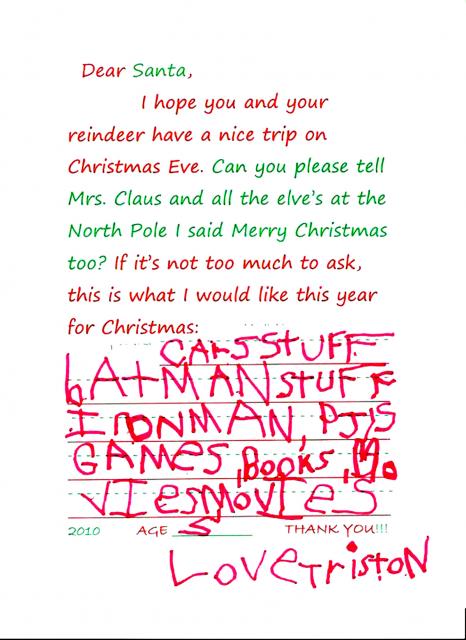 Dear Santa,
I hope you and your
reindeer have a nice trip on
Christmas Eve. Can you please tell
Mrs. Claus and all the elve's at the
North Pole I said Merry Christmas
too? If it's not too much to ask,
this is what I would like this year
for Christmas:
CArSStUFF
bAtMAN STUFF
IRONMAN, PJ'S
GAMES, BOOKS, Mo
VIESMOVIES
2010 AGE 5 THANK YOU!!!
LOVE TristoN